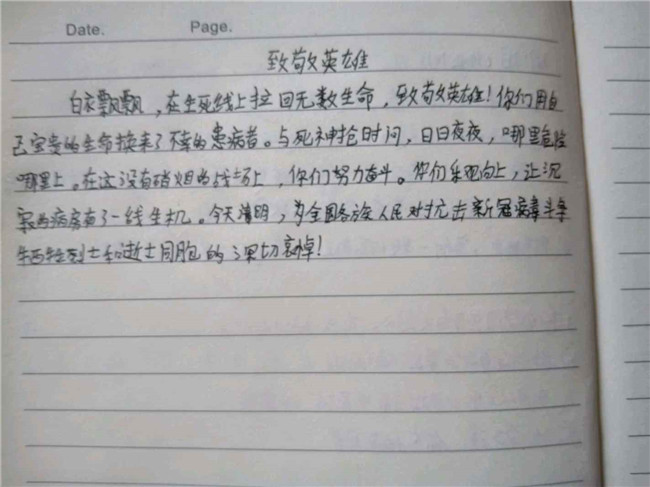 Date. Page.
致敬英雄
白衣飘飘，在生死线上拉回无数生命，致敬英雄！你们用自
己宝贵的生命换来了不幸的患病者。与死神抢时间，日日夜夜，哪里危险
哪里上。在这没有硝烟的战场上，你们努力奋斗。你们乐观向上，让沉
寂的病房有了一线生机。今天清明，为全国各族人民对抗击新冠病毒斗争
牺牲烈士和逝世同胞的深切哀悼！